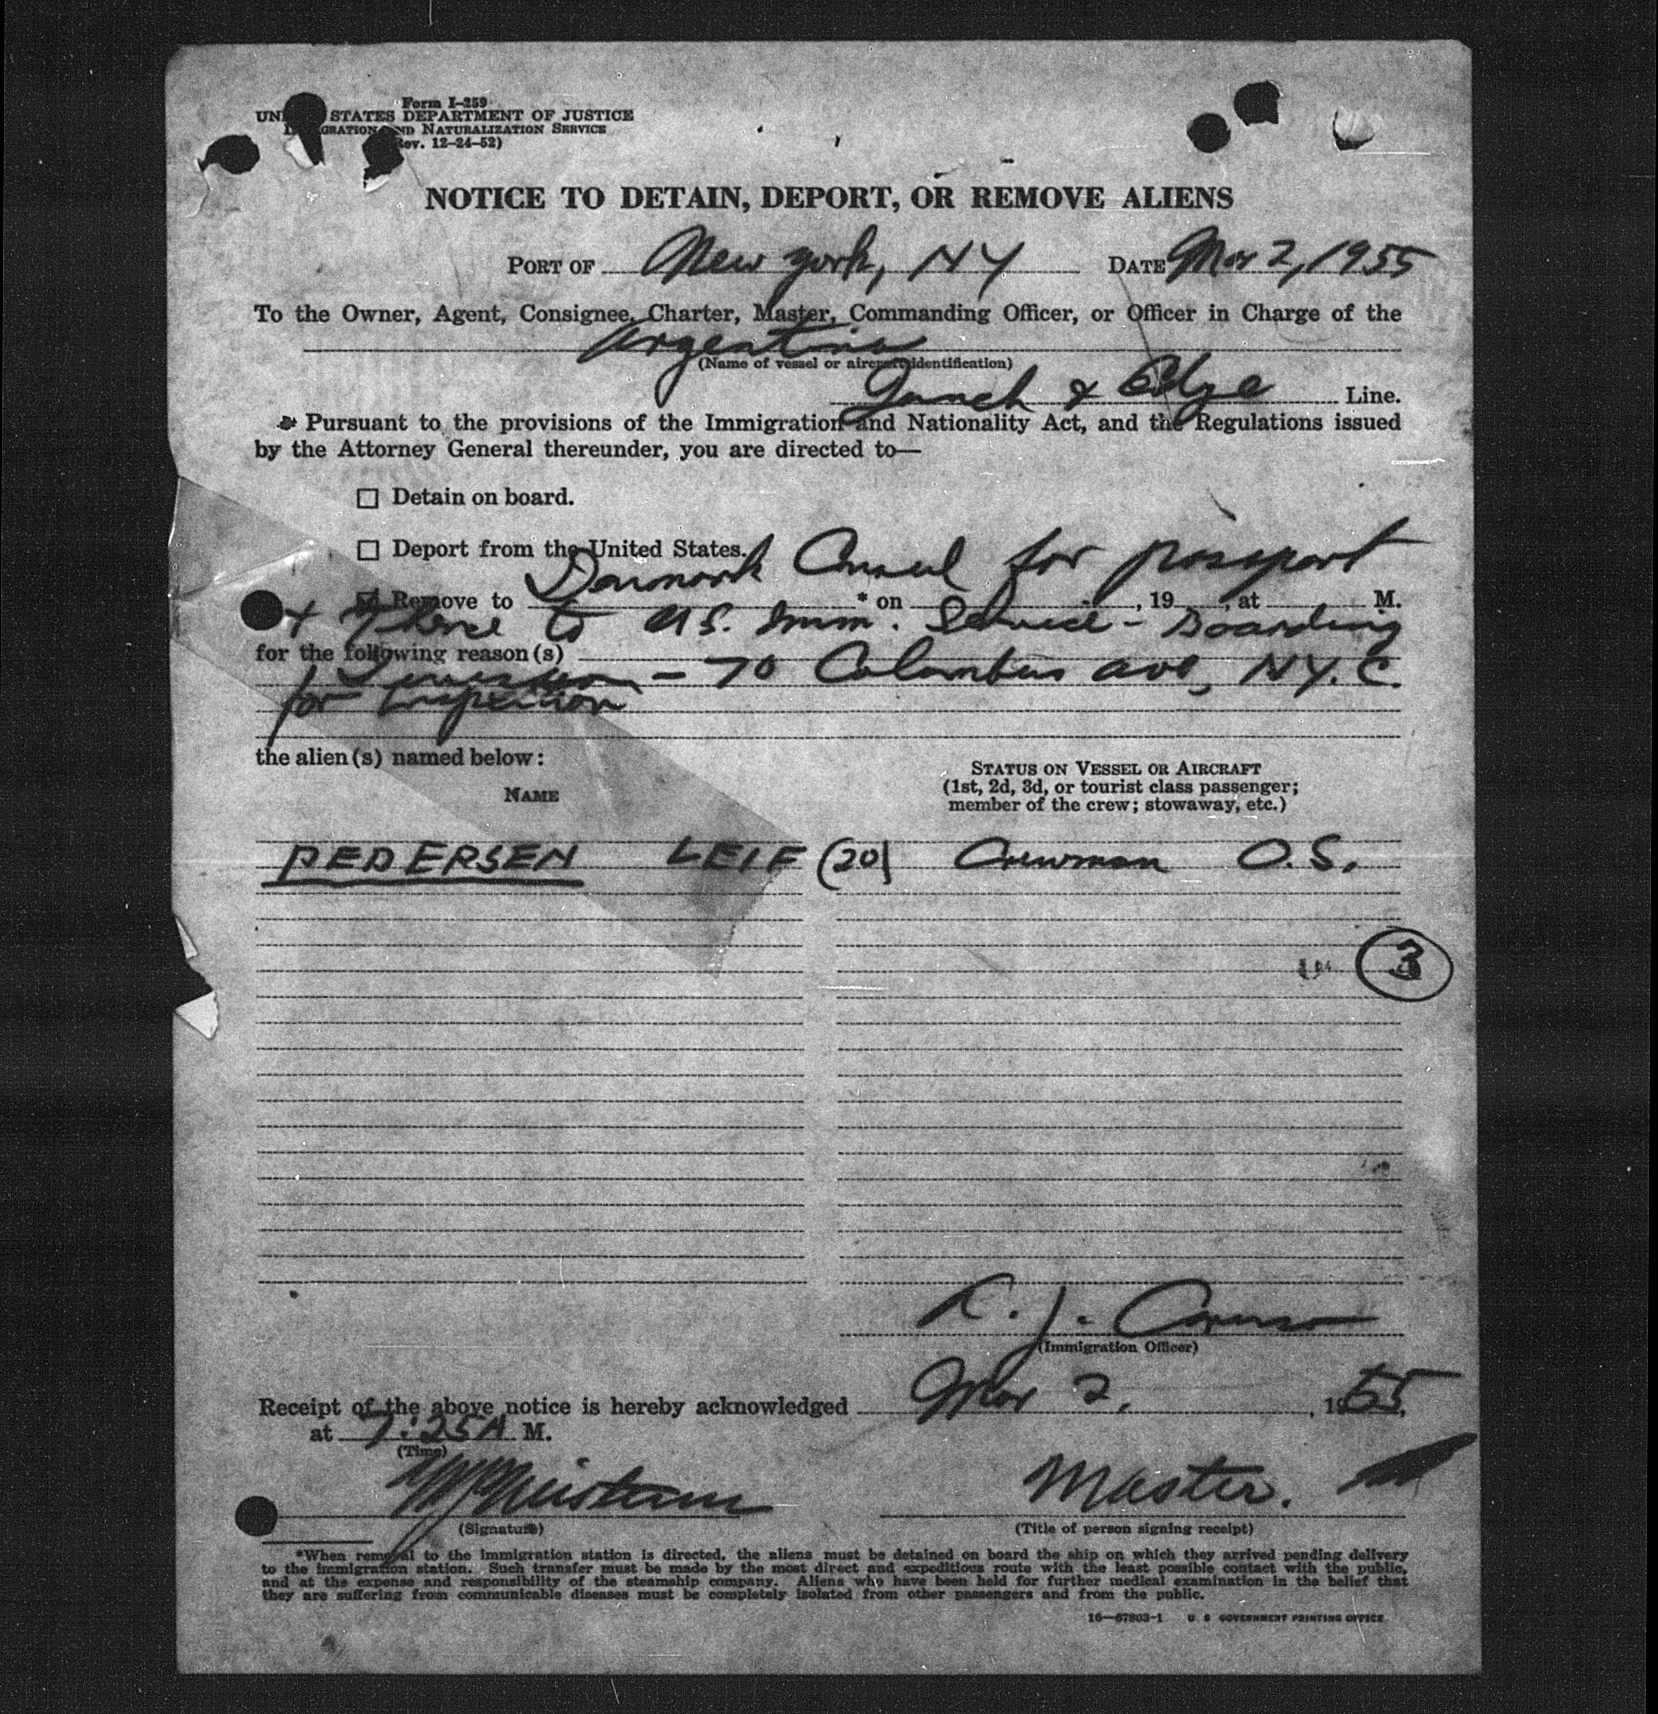 Form I-259
UN STATES DEPARTMENT OF JUSTICE
GRATION AND NATURALIZATION SERVICE
ev. 12-24-52)
NOTICE TO DETAIN, DEPORT, OR REMOVE ALIENS
PORT OF New York, NY DATE Mar 2, 1955
To the Owner, Agent, Consignee, Charter, Master, Commanding Officer, or Officer in Charge of the
Argentina
(Name of vessel or aircraft identification)
& Edge Line.
Pursuant to the provisions of the Immigration and Nationality Act, and the Regulations issued
by the Attorney General thereunder, you are directed to—
☐ Detain on board.
☐ Deport from the United States.
Denmark Consul for passport
Remove to * on , 19 , at M.
+ thence to U.S. Imm. Service - Boarding
for the following reason(s)
- 70 Columbus Ave, N.Y.C.
for inspection
the alien(s) named below:
NAME
STATUS ON VESSEL OR AIRCRAFT
(1st, 2d, 3d, or tourist class passenger;
member of the crew; stowaway, etc.)
PEDERSEN LEIF (20) Crewman O.S.
3
J. Caruso
(Immigration Officer)
Receipt of the above notice is hereby acknowledged Mar 2, 1955,
at 7:25A M.
(Time)
Master.
(Signature)
(Title of person signing receipt)
*When removal to the immigration station is directed, the aliens must be detained on board the ship on which they arrived pending delivery
to the immigration station. Such transfer must be made by the most direct and expeditious route with the least possible contact with the public,
and at the expense and responsibility of the steamship company. Aliens who have been held for further medical examination in the belief that
they are suffering from communicable diseases must be completely isolated from other passengers and from the public.
16—67803-1 U. S. GOVERNMENT PRINTING OFFICE